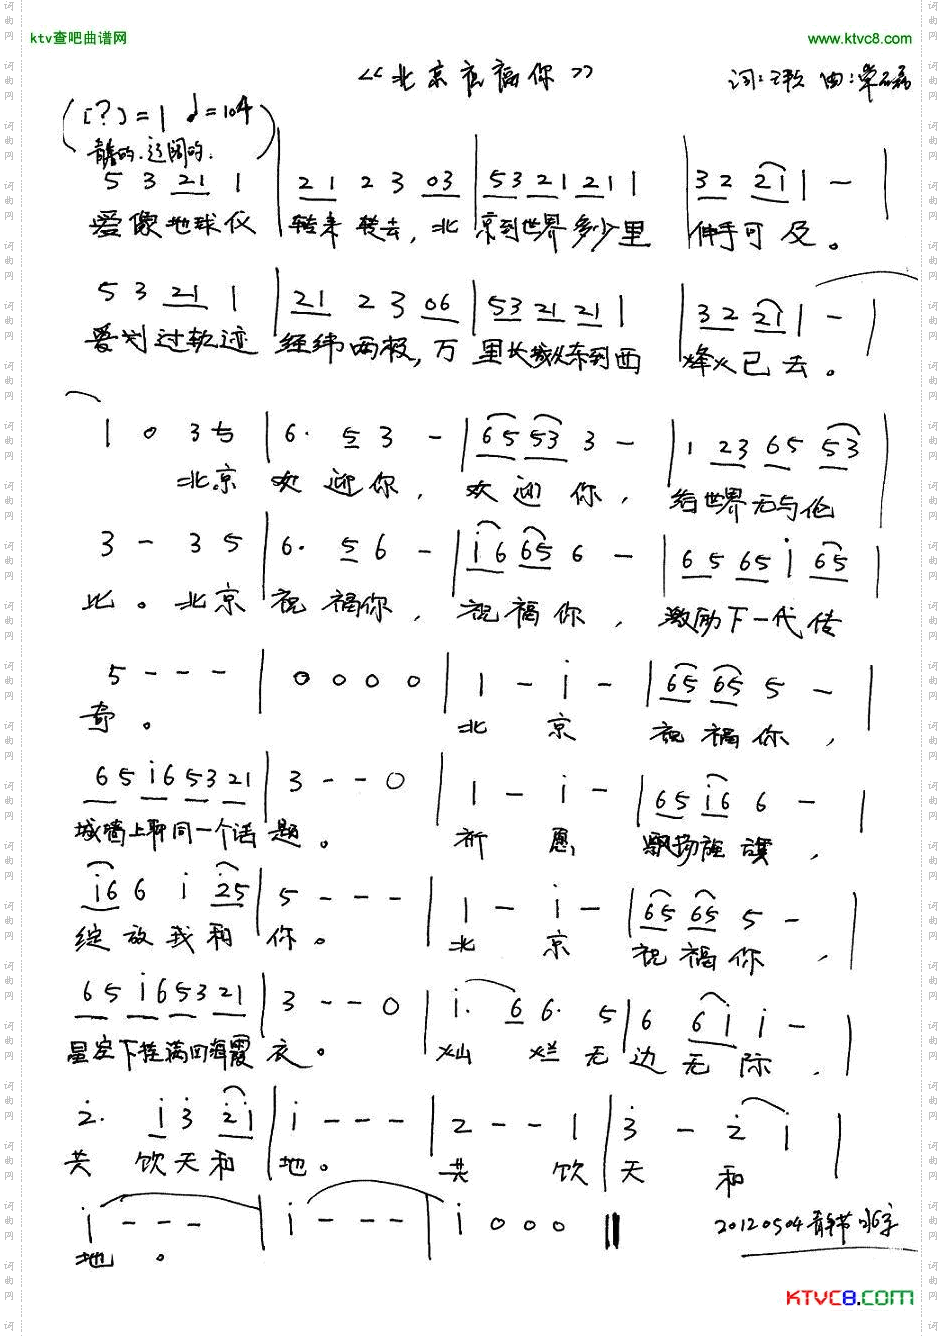 ktv查吧曲谱网 www.ktvc8.com
《北京祝福你》 词:王 曲:常石磊
([?]=1 ♩=104
的.辽阔的.)
5 3 21 1 | 21 2 3 03 | 53 21 21 1 | 32 21 1 - |
爱像地球仪 转来转去,北 京到世界多少里 伸手可及。
5 3 21 1 | 21 2 3 06 | 53 21 21 1 | 32 21 1 - |
爱划过轨迹 经纬两极,万 里长城从东到西 烽火已去。
1 0 3 5 | 6· 5 3 - | 65 53 3 - | 1 23 65 53 |
北京 欢迎你, 欢迎你, 给世界无与伦
3 - 3 5 | 6· 5 6 - | i6 65 6 - | 65 65 i 65 |
比。北京 祝福你, 祝福你, 激励下一代传
5 - - - | 0 0 0 0 | 1 - i - | 65 65 5 - |
奇。 北 京 祝福你,
65 i6 53 21 | 3 - - 0 | 1 - i - | 65 i6 6 - |
城墙上聊同一个话 题。 祈 愿 飘扬旌旗,
i6 6 i 25 | 5 - - - | 1 - i - | 65 65 5 - |
绽放我和 你。 北 京 祝福你,
65 i6 53 21 | 3 - - 0 | i· 6 6· 5 | 6 6i i - |
星空下挂满四海霞 衣。 灿 烂 无 边 无 际,
2· i3 2i | i - - - | 2 - - 1 | 3 - 2 i |
共 饮天和 地。 共 饮 天 和
i - - - | i - - - | i 0 0 0 ‖
地。
20120504青年节
KTVC8.COM
词曲网